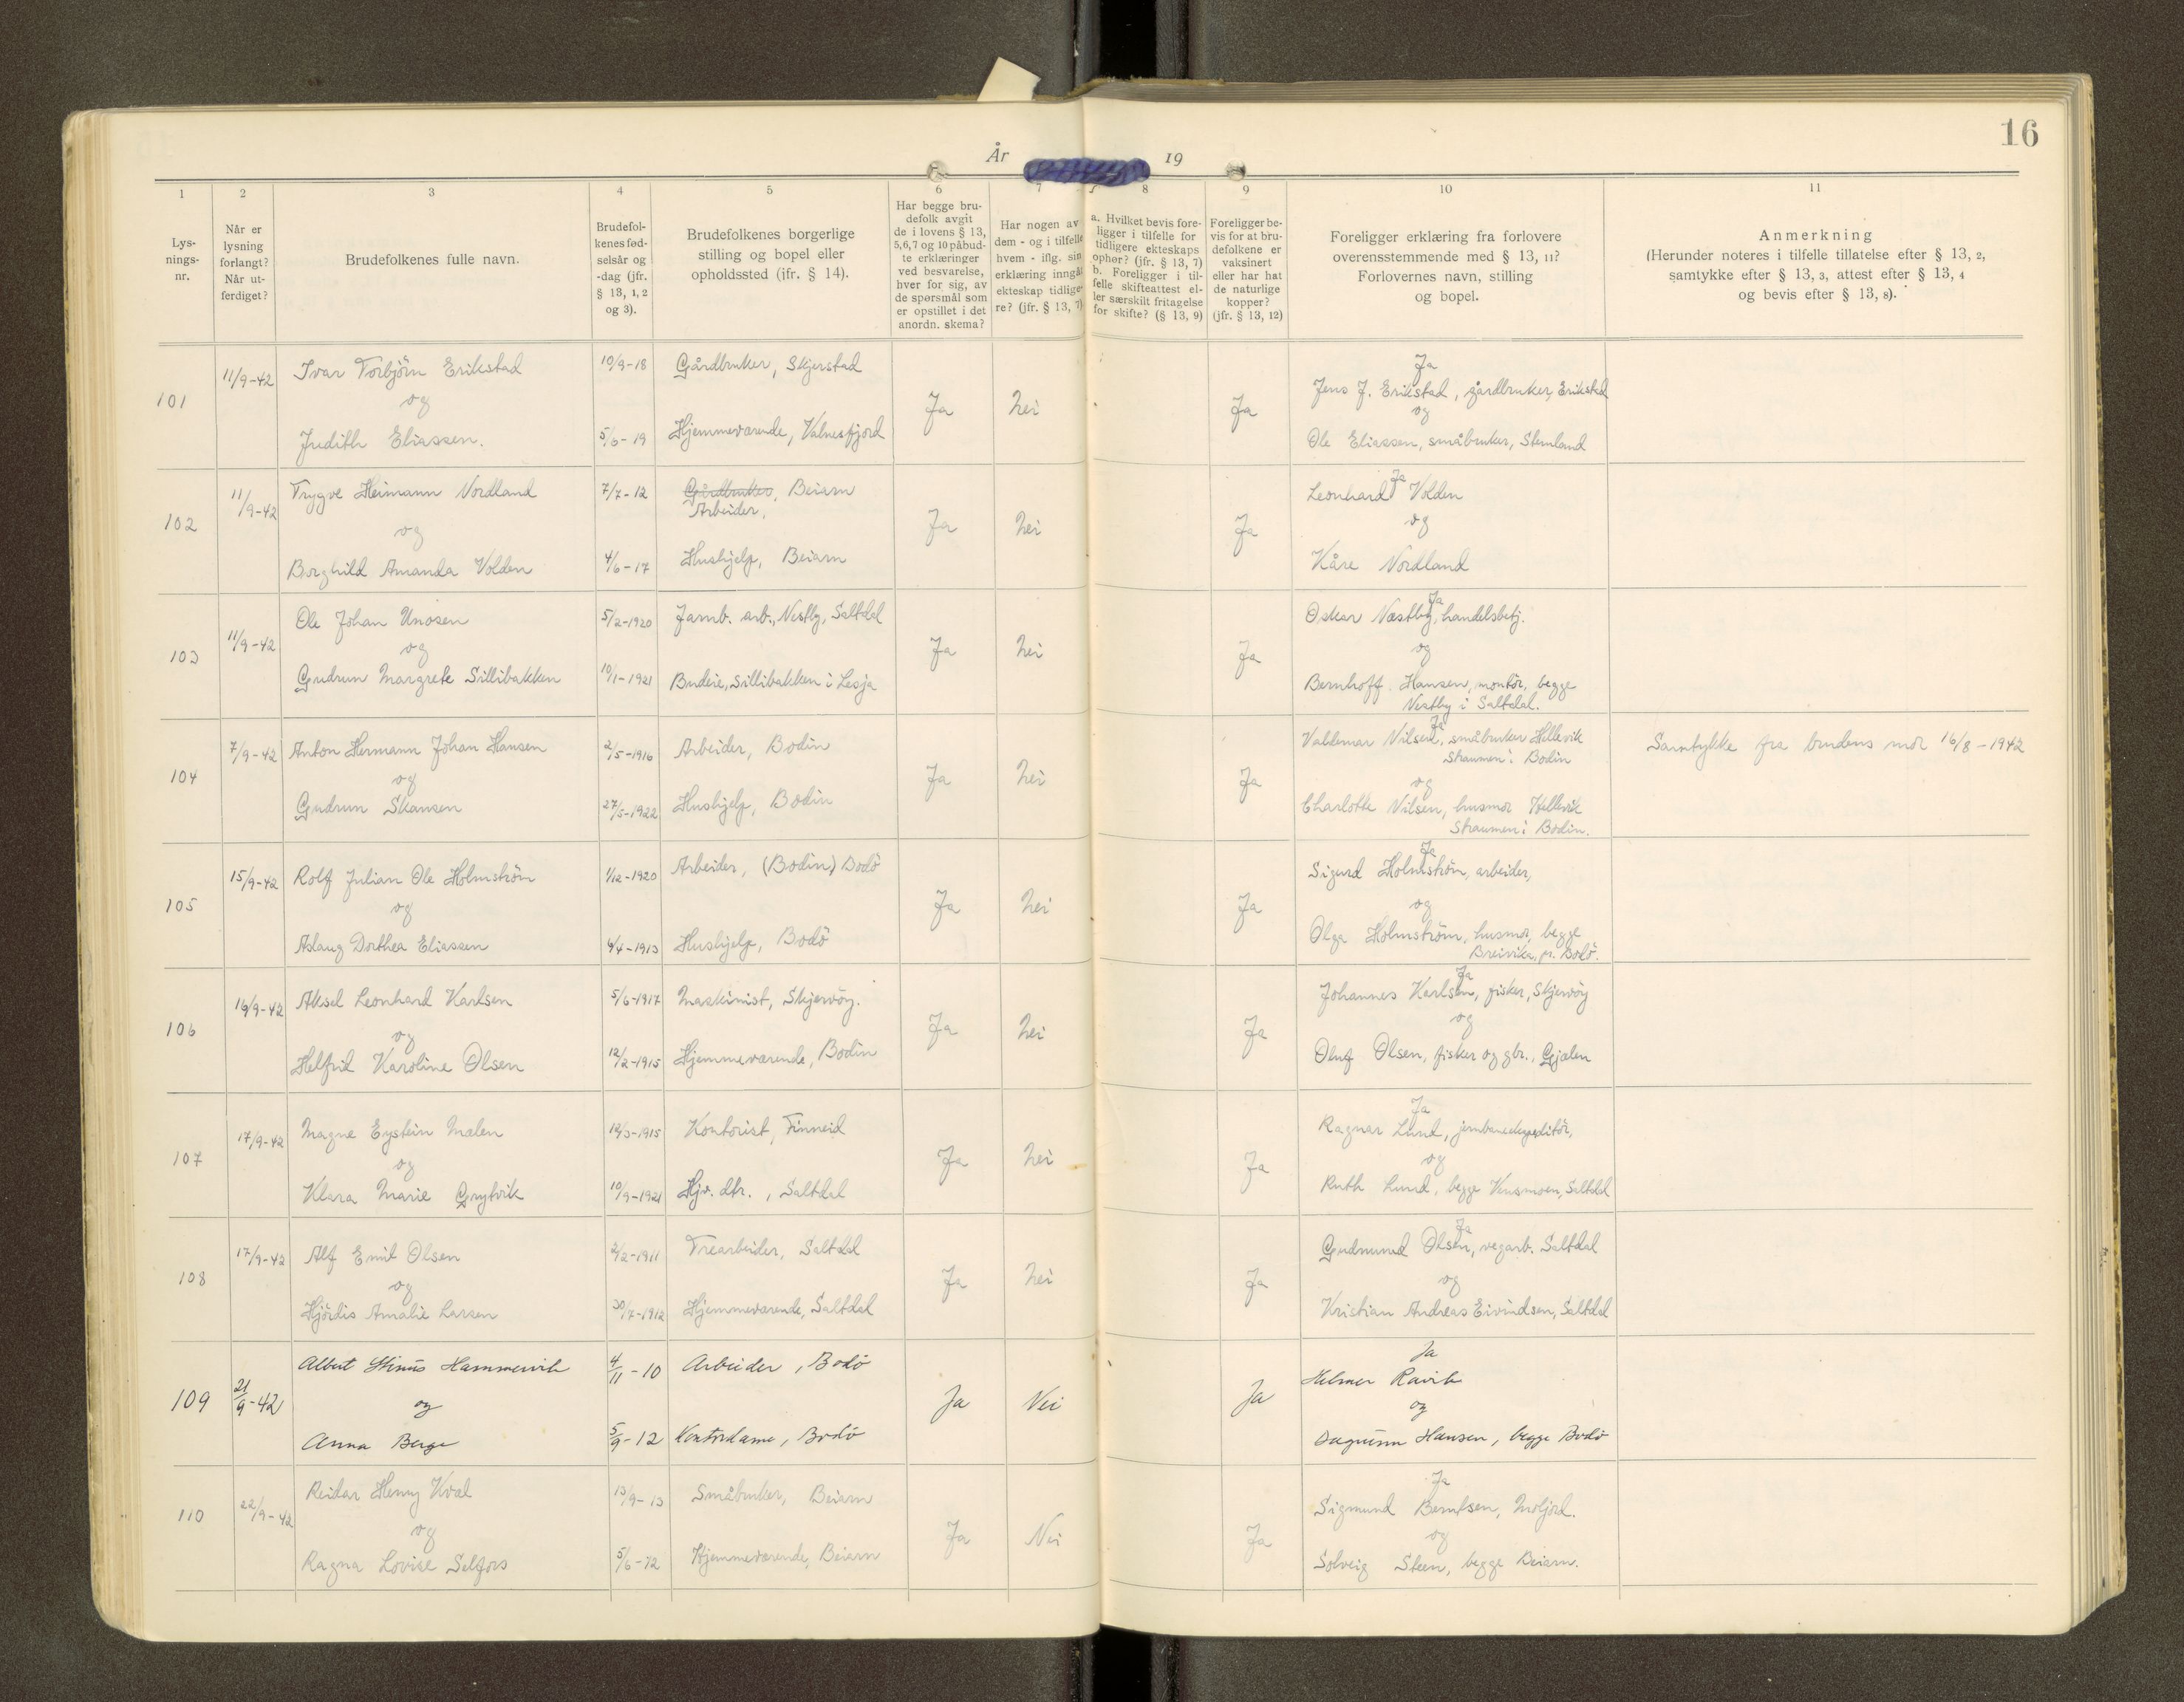 16
År 19
1 2 3 4 5 6 7 8 9 10 11
Lysnings-
nr.
Når er
lysning
forlangt?
Når ut-
ferdiget?
Brudefolkenes fulle navn.
Brudefol-
kenes fød-
selsår og
-dag (jfr.
§ 13, 1, 2
og 3).
Brudefolkenes borgerlige
stilling og bopel eller
opholdssted (jfr. § 14).
Har begge bru-
defolk avgit
de i lovens § 13,
5, 6, 7 og 10 påbud-
te erklæringer
ved besvarelse,
hver for sig, av
de spørsmål som
er opstillet i det
anordn. skema?
Har nogen av
dem - og i tilfelle
hvem - iflg. sin
erklæring inngåt
ekteskap tidlige-
re? (jfr. § 13, 7)
a. Hvilket bevis fore-
ligger i tilfelle for
tidligere ekteskaps
ophør? (jfr. § 13, 7)
b. Foreligger i til-
felle skifteattest el-
ler særskilt fritagelse
for skifte? (§ 13, 9)
Foreligger be-
vis for at bru-
defolkene er
vaksinert
eller har hat
de naturlige
kopper?
(jfr. § 13, 12)
Foreligger erklæring fra forlovere
overensstemmende med § 13, 11?
Forlovernes navn, stilling
og bopel.
Anmerkning
(Herunder noteres i tilfelle tillatelse efter § 13, 2,
samtykke efter § 13, 3, attest efter § 13, 4
og bevis efter § 13, 8).
101 11/9-42 Ivar Torbjörn Erikstad 10/9-18 Gårdbruker, Skjerstad
og
Judith Eliassen. 5/6-19 Hjemmeværende, Valnesfjord
Ja Nei Ja
Ja
Jens J. Erikstad, gårdbruker, Erikstad
og
Ole Eliassen, småbruker, Stemland
102 11/9-42 Trygve Heimann Nordland 7/7-12 Gårdbruker, Beiarn
Arbeider,
og
Borghild Amanda Volden 4/6-17 Hushjelp, Beiarn
Ja Nei Ja
Ja
Leonhard Volden
og
Kåre Nordland
103 11/9-42 Ole Johan Unosen 5/2-1920 Jarnb. arb., Nestby, Saltdal
og
Gudrun Margrete Sillibakken 10/1-1921 Budeie, Sillibakken i Lesja
Ja Nei Ja
Ja
Oskar Næstby, handelsbetj.
og
Bernhoff Hansen, montör, begge
Nestby i Saltdal.
104 7/9-42 Anton Hermann Johan Hansen 2/5-1916 Arbeider, Bodin
og
Gudrun Skansen 27/5-1922 Hushjelp, Bodin
Ja Nei Ja
Ja
Valdemar Nilsen, småbruker Hellevik
Straumen i Bodin
og
Charlotte Nilsen, husmor Hellevik
Straumen i Bodin.
Samtykke fra brudens mor 16/8-1942
105 15/9-42 Rolf Julian Ole Holmström 1/12-1920 Arbeider, (Bodin) Bodö
og
Aslaug Dorthea Eliassen 4/4-1913 Hushjelp, Bodö
Ja Nei Ja
Ja
Sigurd Holmström, arbeider,
og
Olga Holmström, husmor, begge
Breivika, pr. Bodö.
106 16/9-42 Aksel Leonhard Karlsen 5/6-1917 Maskinist, Skjervöy.
og
Helfrid Karoline Olsen 12/2-1915 Hjemmeværende, Bodin
Ja Nei Ja
Ja
Johannes Karlsen, fisker, Skjervöy
og
Oluf Olsen, fisker og gbr., Gjælen
107 17/9-42 Magne Eystein Mælen 12/3-1915 Kontorist, Finneid
og
Klara Marie Grytvik 10/9-1921 Hjv. dtr., Saltdal
Ja Nei Ja
Ja
Ragnar Lund, jernbaneekspeditör,
og
Ruth Lund, begge Vensmoen, Saltdal
108 17/9-42 Alf Emil Olsen 2/2-1911 Trearbeider, Saltdal
og
Hjördis Amalie Larsen 30/7-1912 Hjemmeværende, Saltdal
Ja Nei Ja
Ja
Gudmund Olsen, vegarb. Saltdal
og
Kristian Andreas Eivindsen, Saltdal
109 21/9-42 Albert Stinus Hammervik 4/11-10 Arbeider, Bodö
og
Anna Berge 5/9-12 Kontordame, Bodö
Ja Nei Ja
Ja
Helmer Ravik
og
Dagunn Hansen, begge Bodö
110 22/9-42 Reidar Henry Kvæl 13/9-13 Småbruker, Beiarn
og
Ragna Lovise Selfors 5/6-12 Hjemmeværende, Beiarn
Ja Nei Ja
Ja
Sigmund Berntsen, Moljord.
og
Solveig Steen, begge Beiarn.